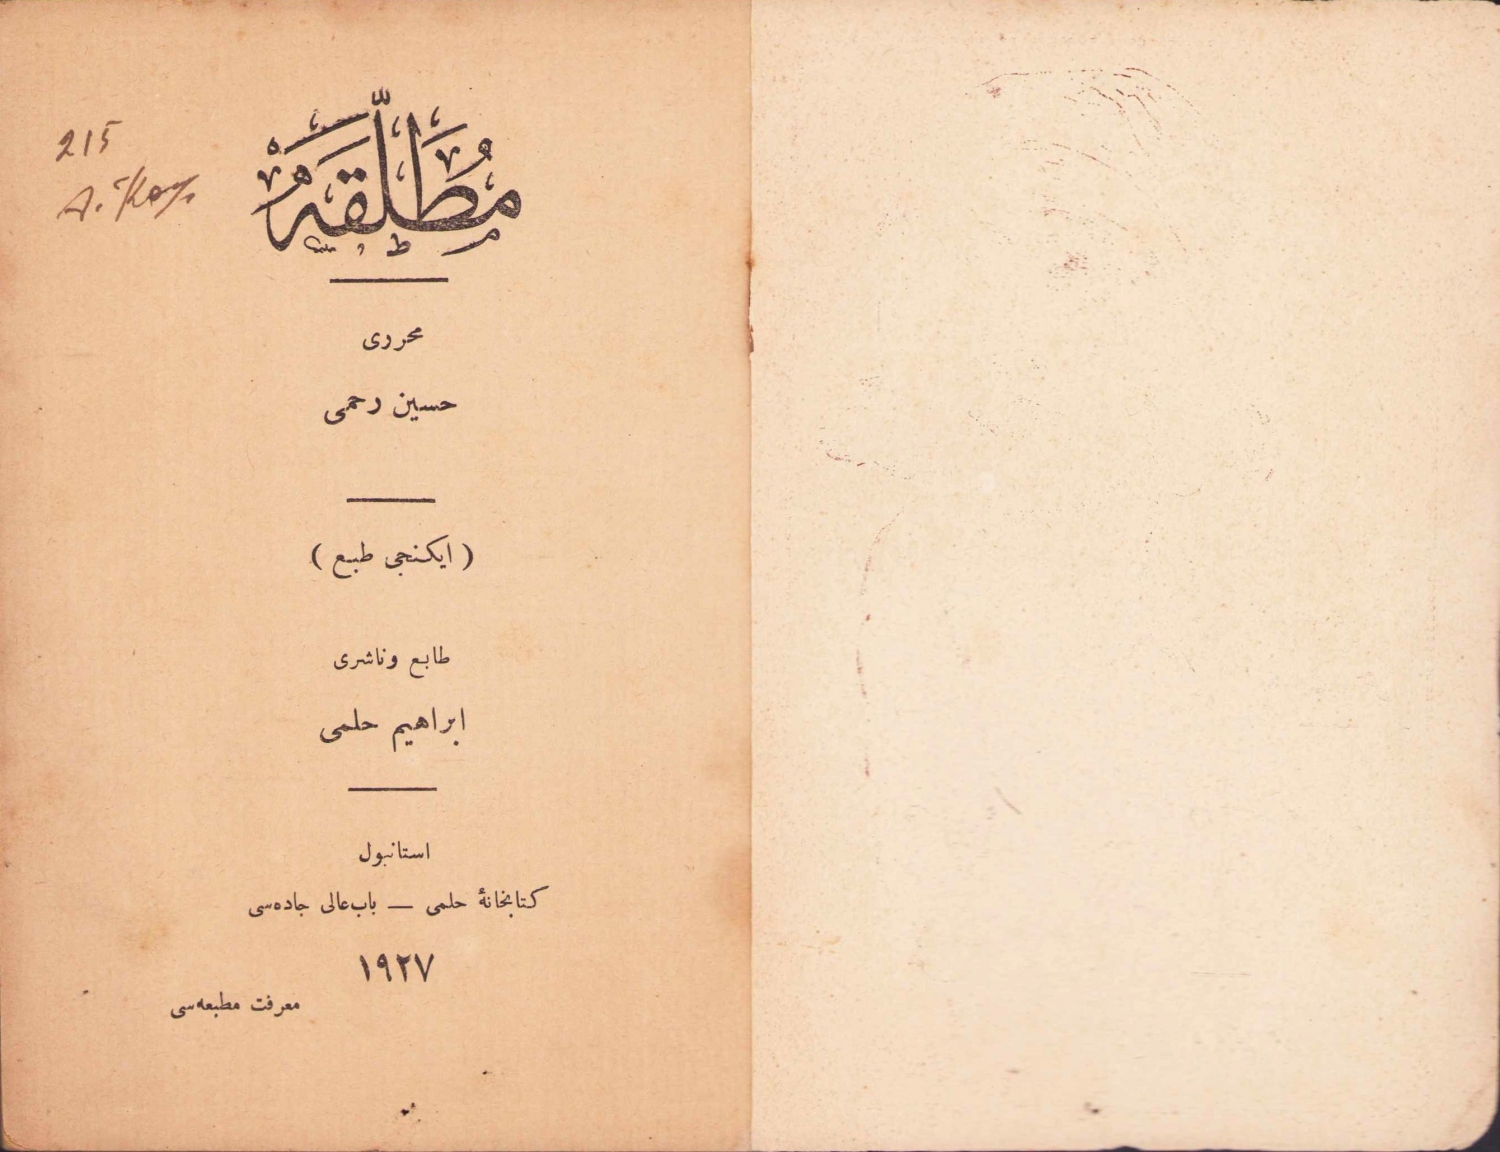 215
مُطَلَّقَه
محرری
حسین رحمی
( ایکنجی طبع )
طابع وناشری
ابراهیم حلمی
استانبول
کتابخانهٔ حلمی — باب‌عالی جاده‌سی
۱۹۲۷
معرفت مطبعه‌سی